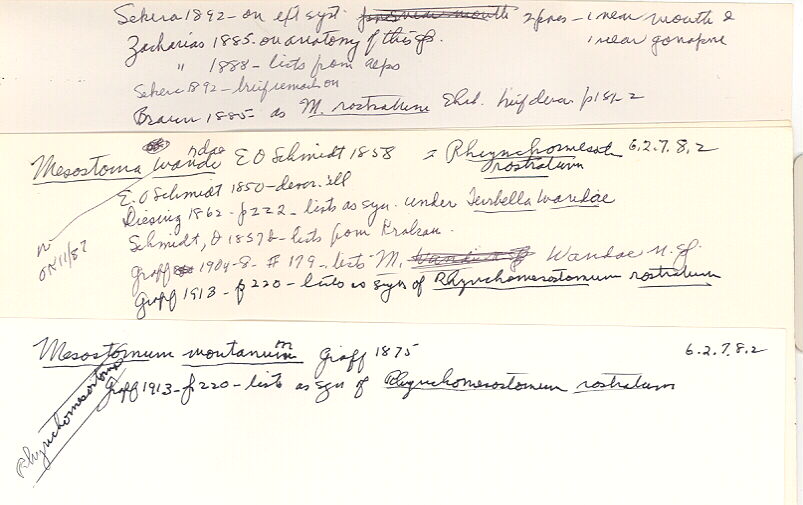 Sekera 1892 - on eft syst. pores near mouth 2 pores - 1 near mouth &
Zacharias 1885 - on anatomy of this sp. 1 near gonopore
" 1888 - lists from alps
Sekera 1892 - brief remark on
Braun 1885 - as M. rostratum Ehrb. brief descr p 18, - 2
Mesostoma wandae E O Schmidt 1858 = Rhynchomesost rostratum 6.2.7.8.2
ndae
E. O Schmidt 1850 - descr. ill
Diesing 1862 - p 222 - lists as syn. under Turbella Wandae
Schmidt, O 1857b - lists from Krakau.
Graff 1904-8 - # 179 - lists M. Wandae n. sp.
Graff 1913 - p 220 - lists as syn of Rhynchomesostomum rostratum
OK 11/87
Mesostomum montanum Graff 1875 6.2.7.8.2
Graff 1913 - p 220 - lists as syn of Rhynchomesostomum rostratum
Rhynchomesostoma